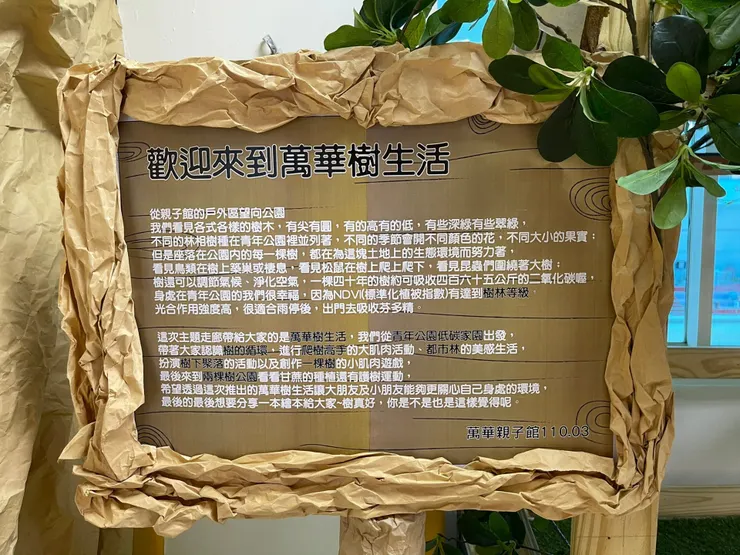 歡迎來到萬華樹生活
從親子館的戶外區望向公園
我們看見各式各樣的樹木，有尖有圓，有的高有的低，有些深綠有些翠綠，
不同的林相樹種在青年公園裡並列著，不同的季節會開不同顏色的花，不同大小的果實；
但是座落在公園內的每一棵樹，都在為這塊土地上的生態環境而努力著，
看見鳥類在樹上築巢或棲息，看見松鼠在樹上爬上爬下，看見昆蟲們圍繞著大樹；
樹還可以調節氣候、淨化空氣，一棵四十年的樹約可吸收四百六十五公斤的二氧化碳喔，
身處在青年公園的我們很幸福，因為NDVI(標準化植被指數)有達到樹林等級，
光合作用強度高，很適合雨停後，出門去吸收芬多精。
這次主題走廊帶給大家的是萬華樹生活，我們從青年公園低碳家園出發，
帶著大家認識樹的循環，進行爬樹高手的大肌肉活動、都市林的美感生活，
扮演樹下聚落的活動以及創作一棵樹的小肌肉遊戲，
最後來到兩棵樹公園看看甘蔗的種植還有護樹運動，
希望透過這次推出的萬華樹生活讓大朋友及小朋友能夠更關心自己身處的環境，
最後的最後想要分享一本繪本給大家~樹真好，你是不是也是這樣覺得呢。
萬華親子館110.03